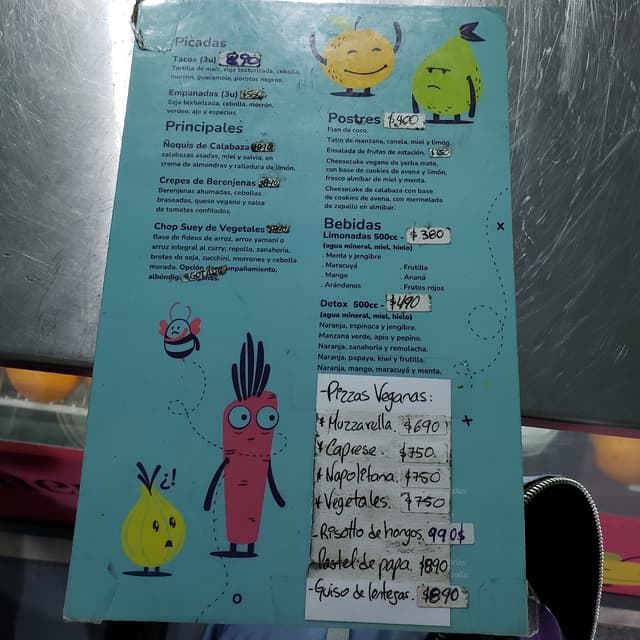 Picadas
Tacos (3u) $890
Tortilla de maíz, soja texturizada, cebolla,
morrón, guacamole, porotos negros.
Empanadas (3u)
Soja texturizada, cebolla, morrón,
verdeo, ajo y especias.
Principales
Ñoquis de Calabaza
calabazas asadas, miel y salvia, en
crema de almendras y ralladura de limón.
Crepes de Berenjenas
Berenjenas ahumadas, cebollas
braseadas, queso vegano y salsa
de tomates confitados.
Chop Suey de Vegetales
Base de fideos de arroz, arroz yamaní o
arroz integral al curry; repollo, zanahoria,
brotes de soja, zucchini, morrones y cebolla
morada. Opción acompañamiento,
albóndigas
¿!
O
Postres $400
Flan de coco.
Tatin de manzana, canela, miel y limón.
Ensalada de frutas de estación. $350
Cheesecake vegano de yerba mate,
con base de cookies de avena y limón,
fresco almíbar de miel y menta.
Cheesecake de calabaza con base
de cookies de avena, con mermelada
de zapallo en almíbar.
Bebidas
Limonadas 500cc - $380
(agua mineral, miel, hielo)
. Menta y jengibre
. Maracuyá . Frutilla
. Mango . Ananá
. Arándanos . Frutos rojos
Detox 500cc - $490
(agua mineral, miel, hielo)
Naranja, espinaca y jengibre.
Manzana verde, apio y pepino.
Naranja, zanahoria y remolacha.
Naranja, papaya, kiwi y frutilla.
Naranja, mango, maracuyá y menta.
-Pizzas Veganas:
* Muzzarella. $690
* Caprese. $750
* Napoletana. $750
* Vegetales. $750
-Risotto de hongos. 990$
-Pastel de papa. $890
-Guiso de lentejas. $890